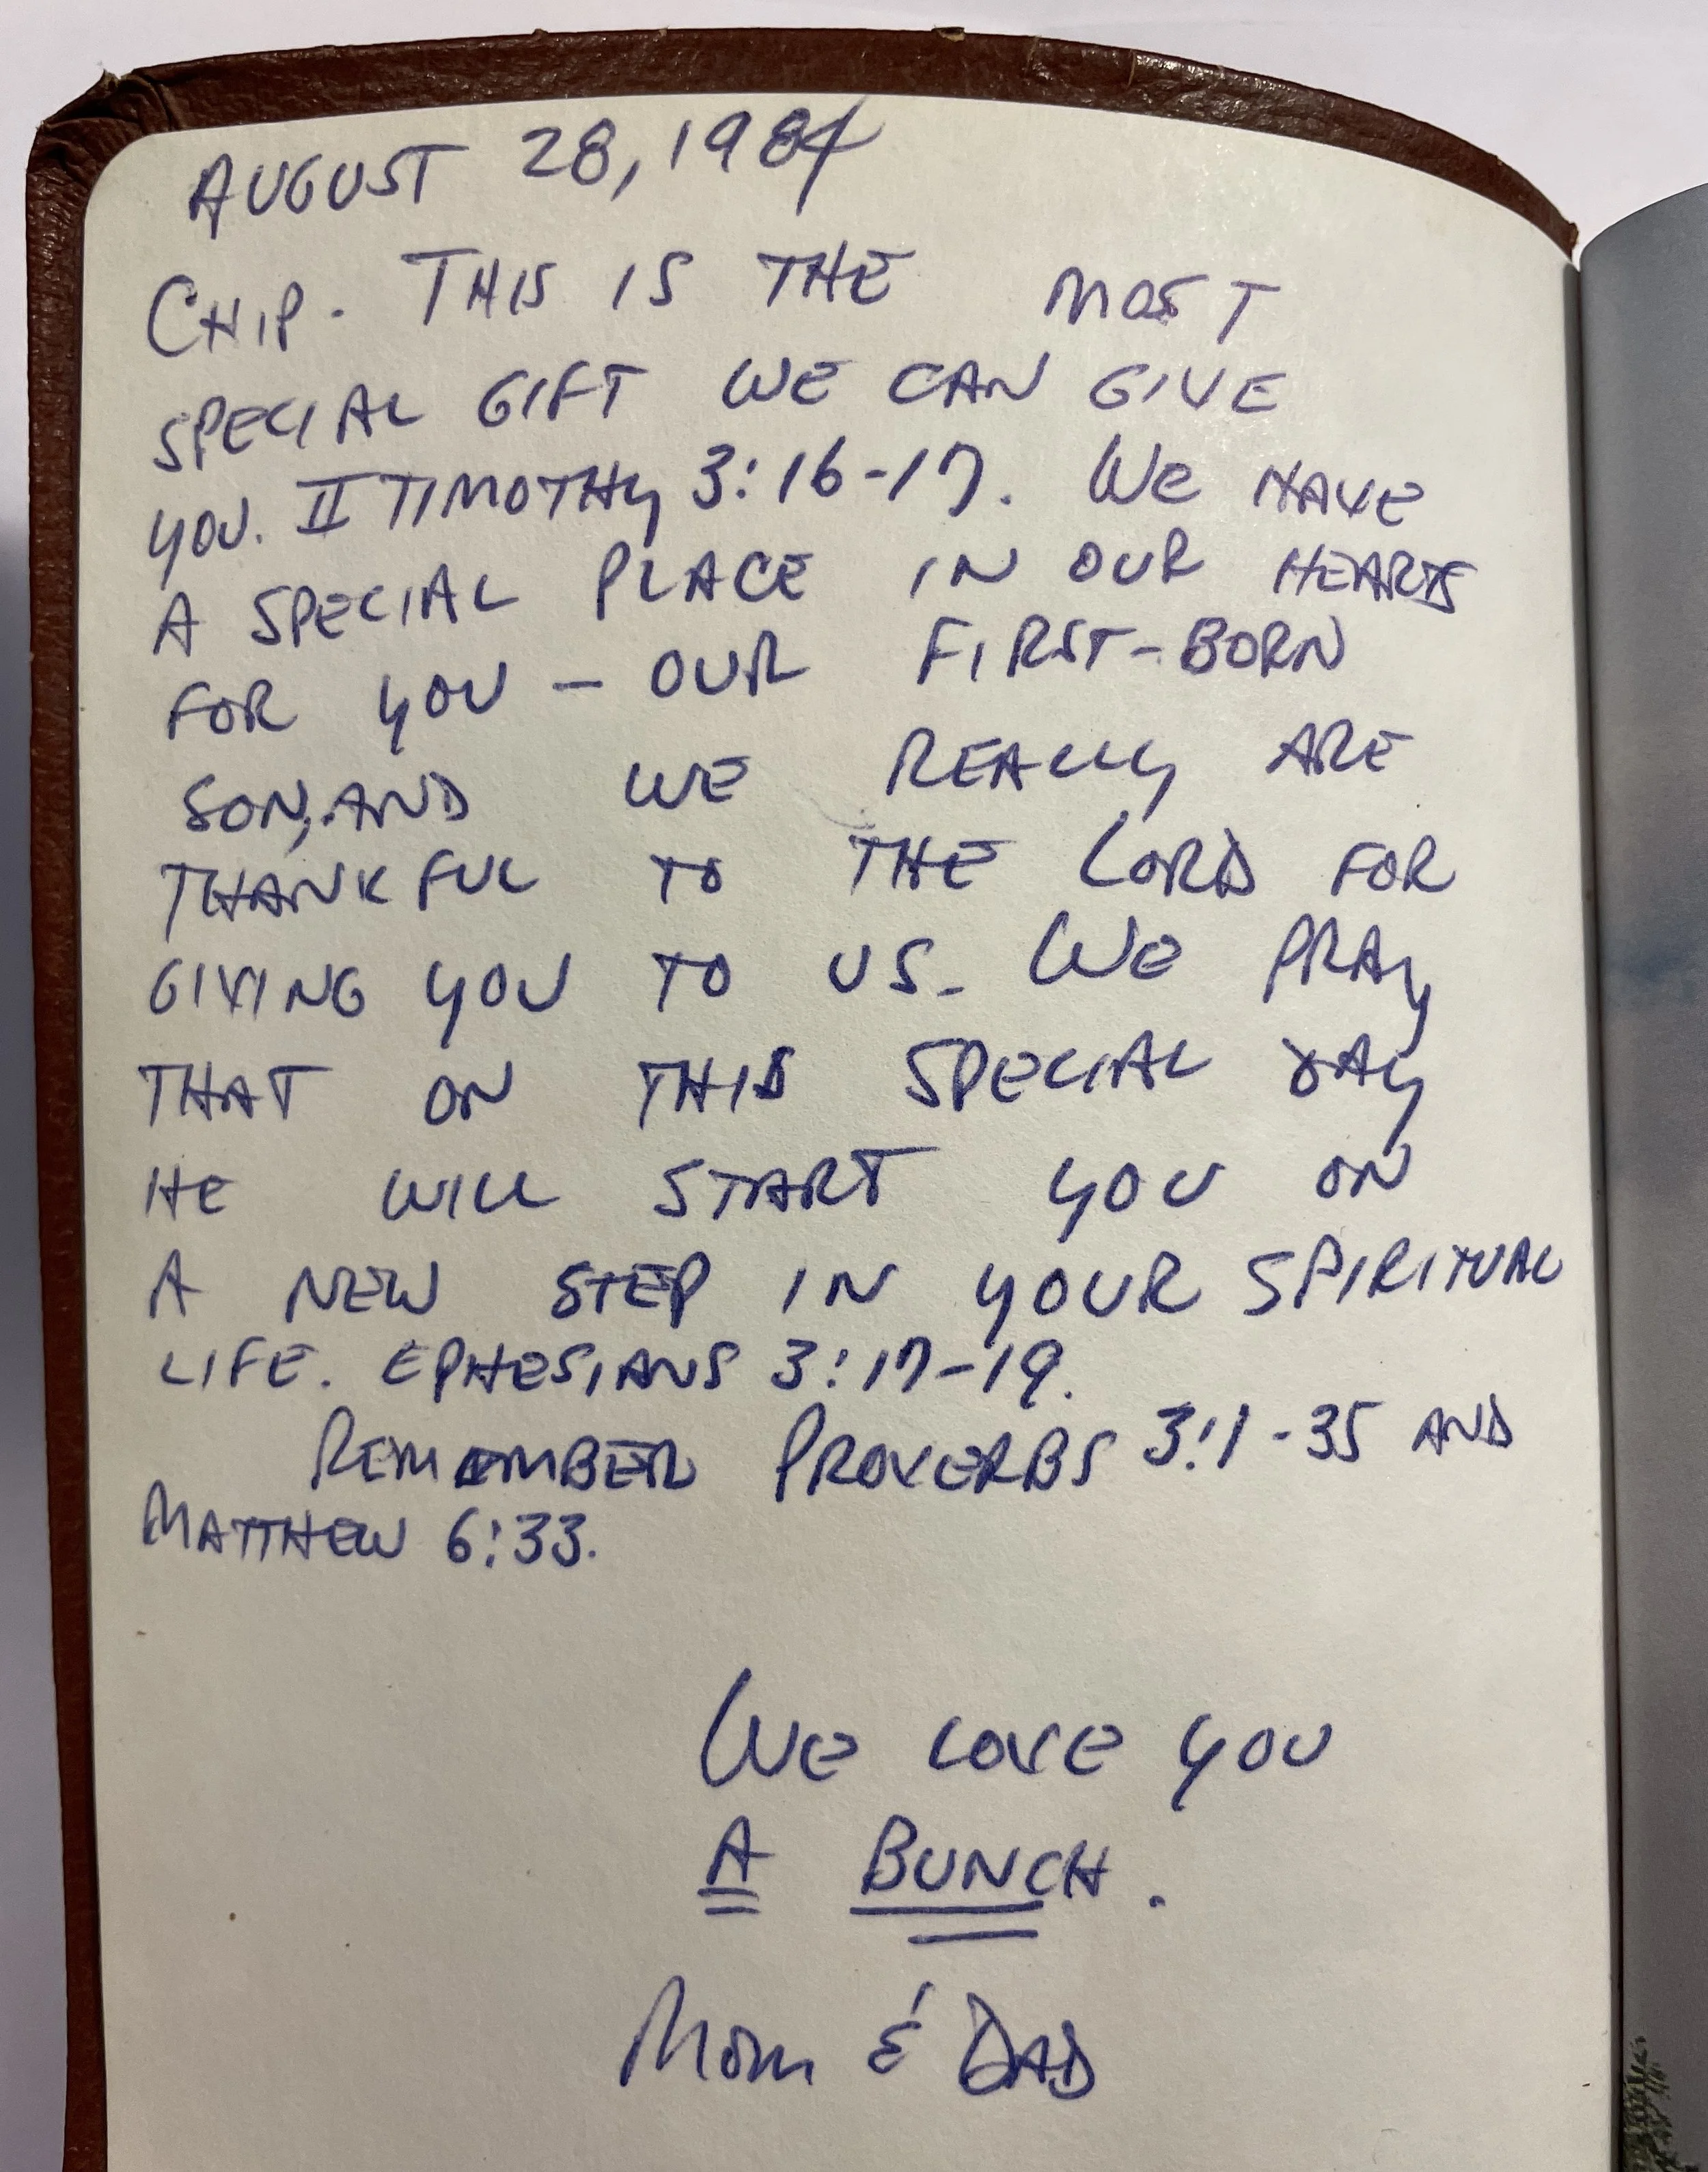 AUGUST 28, 1984
CHIP. THIS IS THE MOST
SPECIAL GIFT WE CAN GIVE
YOU. II TIMOTHY 3:16-17. WE HAVE
A SPECIAL PLACE IN OUR HEARTS
FOR YOU – OUR FIRST-BORN
SON, AND WE REALLY ARE
THANKFUL TO THE LORD FOR
GIVING YOU TO US. WE PRAY
THAT ON THIS SPECIAL DAY
HE WILL START YOU ON
A NEW STEP IN YOUR SPIRITUAL
LIFE. EPHESIANS 3:17-19.
REMEMBER PROVERBS 3:1-35 AND
MATTHEW 6:33.
WE LOVE YOU
A BUNCH.
MOM & DAD